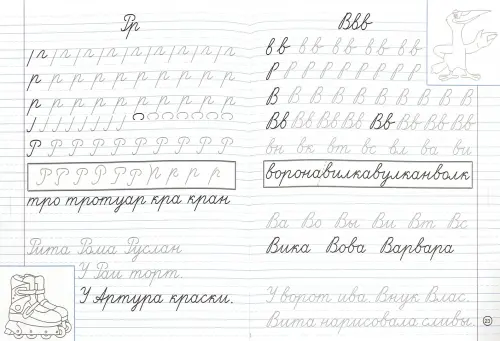 Рр
р р р р р р р р р р
р р р р р р р р р р
Р Р Р Р Р Р Р Р Р Р
Р Р Р Р Р Р р р р р
тро тротуар кра кран
Рита Рома Руслан
У Раи торт.
У Артура краски.
Ввв
вв вв вв вв вв вв
Р Р Р Р Р Р Р Р Р
В В В В В В В В В
Вв Вв Вв Вв Вв Вв Вв Вв
вн вк вт вс вл ва ви
воронавилкавулканволк
Ва Во Вы Ви Вт Вс
Вика Вова Варвара
У ворот ива. Внук Влас.
Вита нарисовала сливы.
23